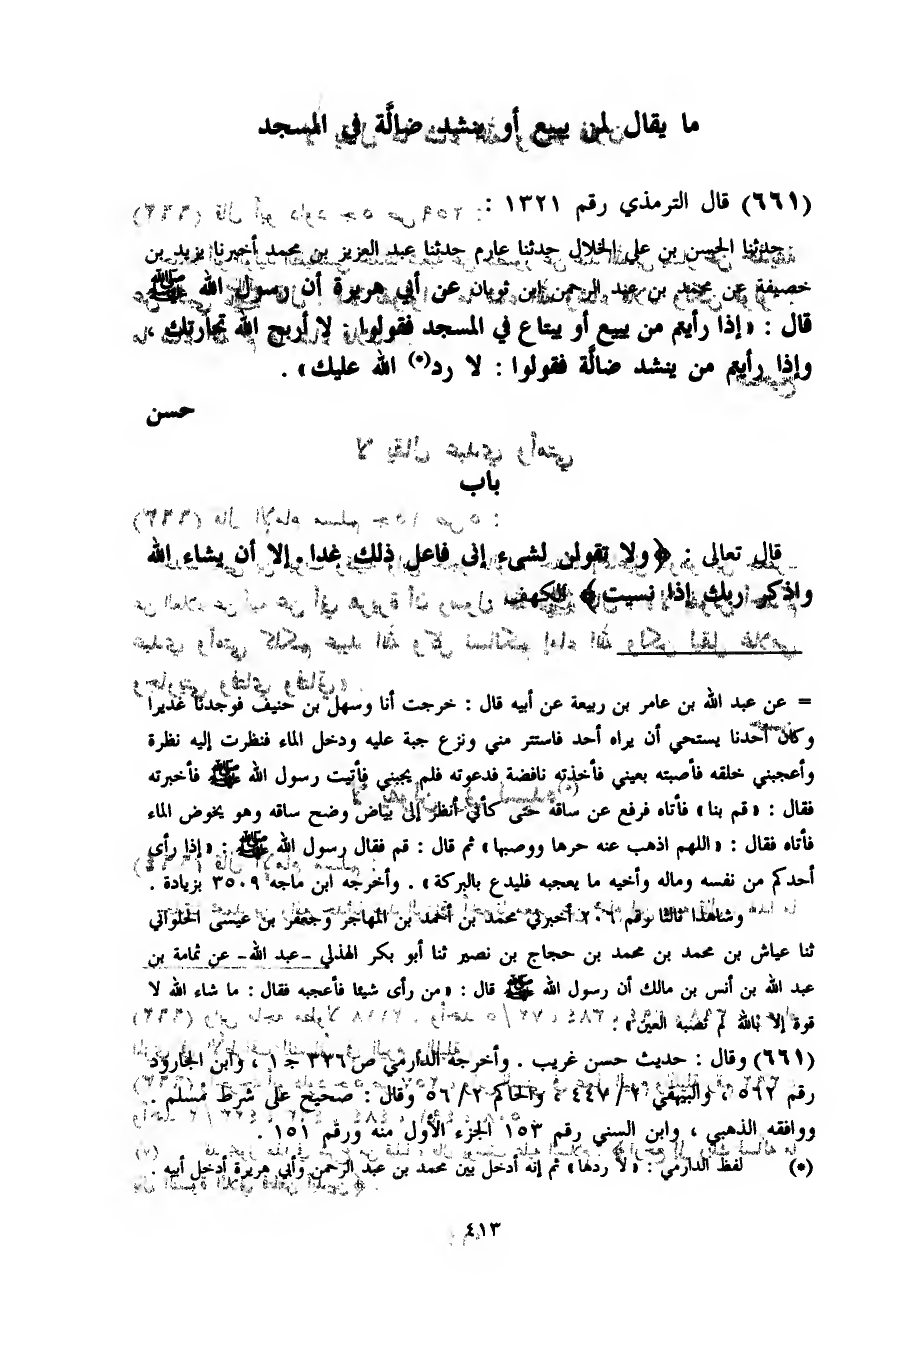 ما يقال لمن يبيع أو ينشد ضالَّة في المسجد
(٦٦١) قال الترمذي رقم ١٣٢١ :
حدثنا الحسن بن علي الخلال حدثنا عارم حدثنا عبد العزيز بن محمد أخبرنا يزيد بن
خصيفة عن محمد بن عبد الرحمن ابن ثوبان عن أبي هريرة أن رسول الله ﷺ
قال : «إذا رأيتم من يبيع أو يبتاع في المسجد فقولوا : لا أربح الله تجارتك ،
وإذا رأيتم من ينشد ضالَّة فقولوا : لا رد(*) الله عليك» .
حسن
باب
قال تعالى : ﴿ولا تقولن لشيء إنى فاعل ذلك غدا . إلا أن يشاء الله
واذكر ربك إذا نسيت﴾ الكهف
= عن عبد الله بن عامر بن ربيعة عن أبيه قال : خرجت أنا وسهل بن حنيف فوجدنا غديرا
وكان أحدنا يستحي أن يراه أحد فاستتر مني ونزع جبة عليه ودخل الماء فنظرت إليه نظرة
وأعجبني خلقه فأصبته بعيني فأخذته نافضة فدعوته فلم يجبني فأتيت رسول الله ﷺ فأخبرته
فقال : «قم بنا» فأتاه فرفع عن ساقه حتى كأني أنظر إلى بياض وضح ساقه وهو يخوض الماء
فأتاه فقال : «اللهم اذهب عنه حرها ووصبها» ثم قال : قم فقال رسول الله ﷺ : «إذا رأى
أحدكم من نفسه وماله وأخيه ما يعجبه فليدع بالبركة» . وأخرجه ابن ماجه ٣٥٠٩ بزيادة .
وشاهدا ثالثا رقم ٢٠٦ أخبرني محمد بن أحمد بن المهاجر وجعفر بن عيسى الحلواني
ثنا عياش بن محمد بن محمد بن حجاج بن نصير ثنا أبو بكر الهذلي -عبد الله- عن ثمامة بن
عبد الله بن أنس بن مالك أن رسول الله ﷺ قال : «من رأى شيئا فأعجبه فقال : ما شاء الله لا
قوة إلا بالله لم تصبه العين» .
(٦٦١) وقال : حديث حسن غريب . وأخرجه الدارمي ص ٣٣٦ جـ ١ ، وابن الجارود
رقم ٥٦٢ ، والبيهقي ٢ / ٤٤٧ ، والحاكم ٢ / ٥٦ وقال : صحيح على شرط مسلم .
ووافقه الذهبي ، وابن السني رقم ١٥٣ الجزء الأول منه ورقم ١٥١ .
(*) لفظ الدارمي : «لا ردها» ثم إنه أدخل بين محمد بن عبد الرحمن وأبي هريرة أدخل أبيه .
٤١٣